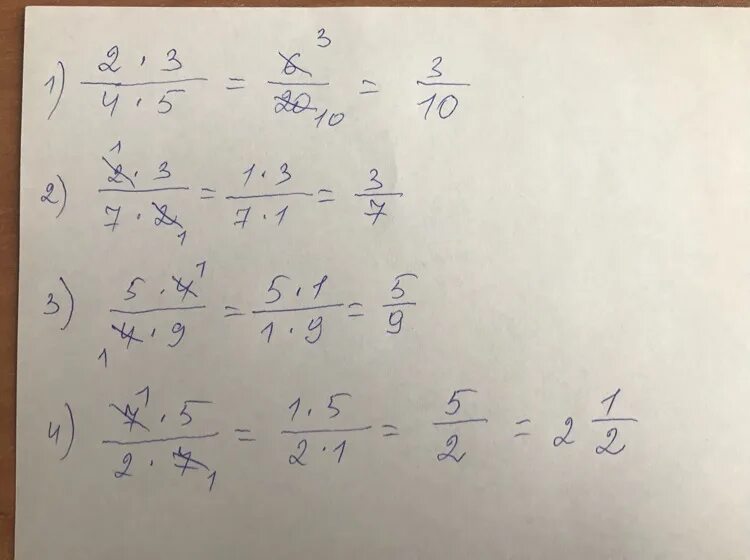 1) (2 · 3)/(4 · 5) = 6 3/20 10 = 3/10
2) (2 1 · 3)/(7 · 2 1) = (1 · 3)/(7 · 1) = 3/7
3) (5 · 4 1)/(4 1 · 9) = (5 · 1)/(1 · 9) = 5/9
4) (7 1 · 5)/(2 · 7 1) = (1 · 5)/(2 · 1) = 5/2 = 2 1/2